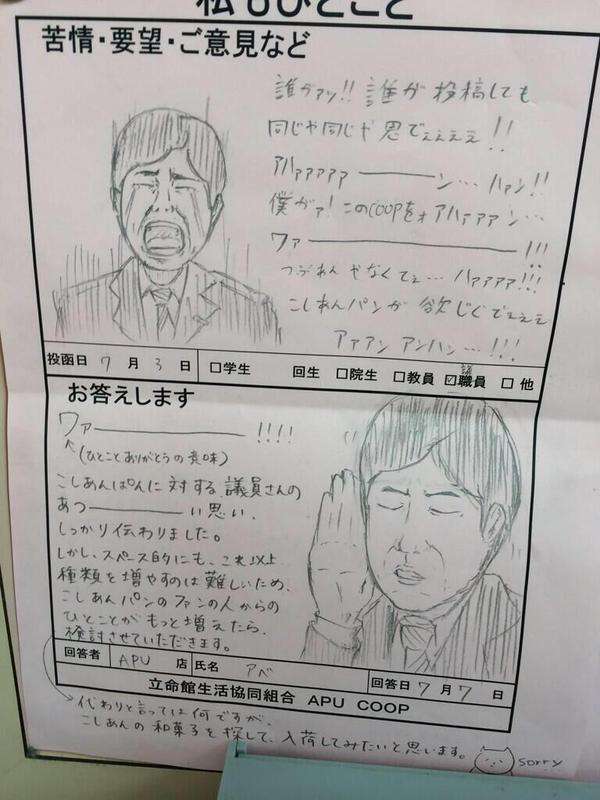 私もひとこと
苦情・要望・ご意見など
誰がァッ!! 誰が投稿しても
同じや同じや思でぇぇぇぇ!!
アハァァァァァ――――ン… ハァン!!
僕がァ! このCOOPをォ アハァァァン…
ワァ――――――――――!!!
つぶあんやなくてェ… ハァァァァ!!!
こしあんパンが欲じぐでぇぇぇ
アァアン アンハン…!!!
投函日 7 月 3 日 □学生 回生 □院生 □教員 ☑職員 □他
議
お答えします
ワァ――――――――!!!!
(ひとことありがとうの意味)
こしあんぱんに対する議員さんの
あつ――――――い思い、
しっかり伝わりました。
しかし、スペース的にも、これ以上
種類を増やすのは難しいため、
こしあんパンのファンの人からの
ひとことがもっと増えたら、
検討させていただきます。
回答者 APU 店 氏名 アベ 回答日 7 月 7 日
立命館生活協同組合 APU COOP
代わりと言っては何ですが、
こしあんの和菓子を探して、入荷してみたいと思います。
sorry